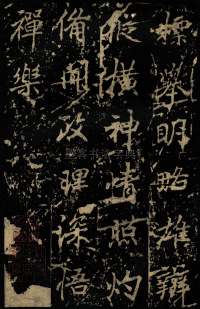 標舉明略雄辯
縱橫神情照灼
備閑政理深悟
禪樂